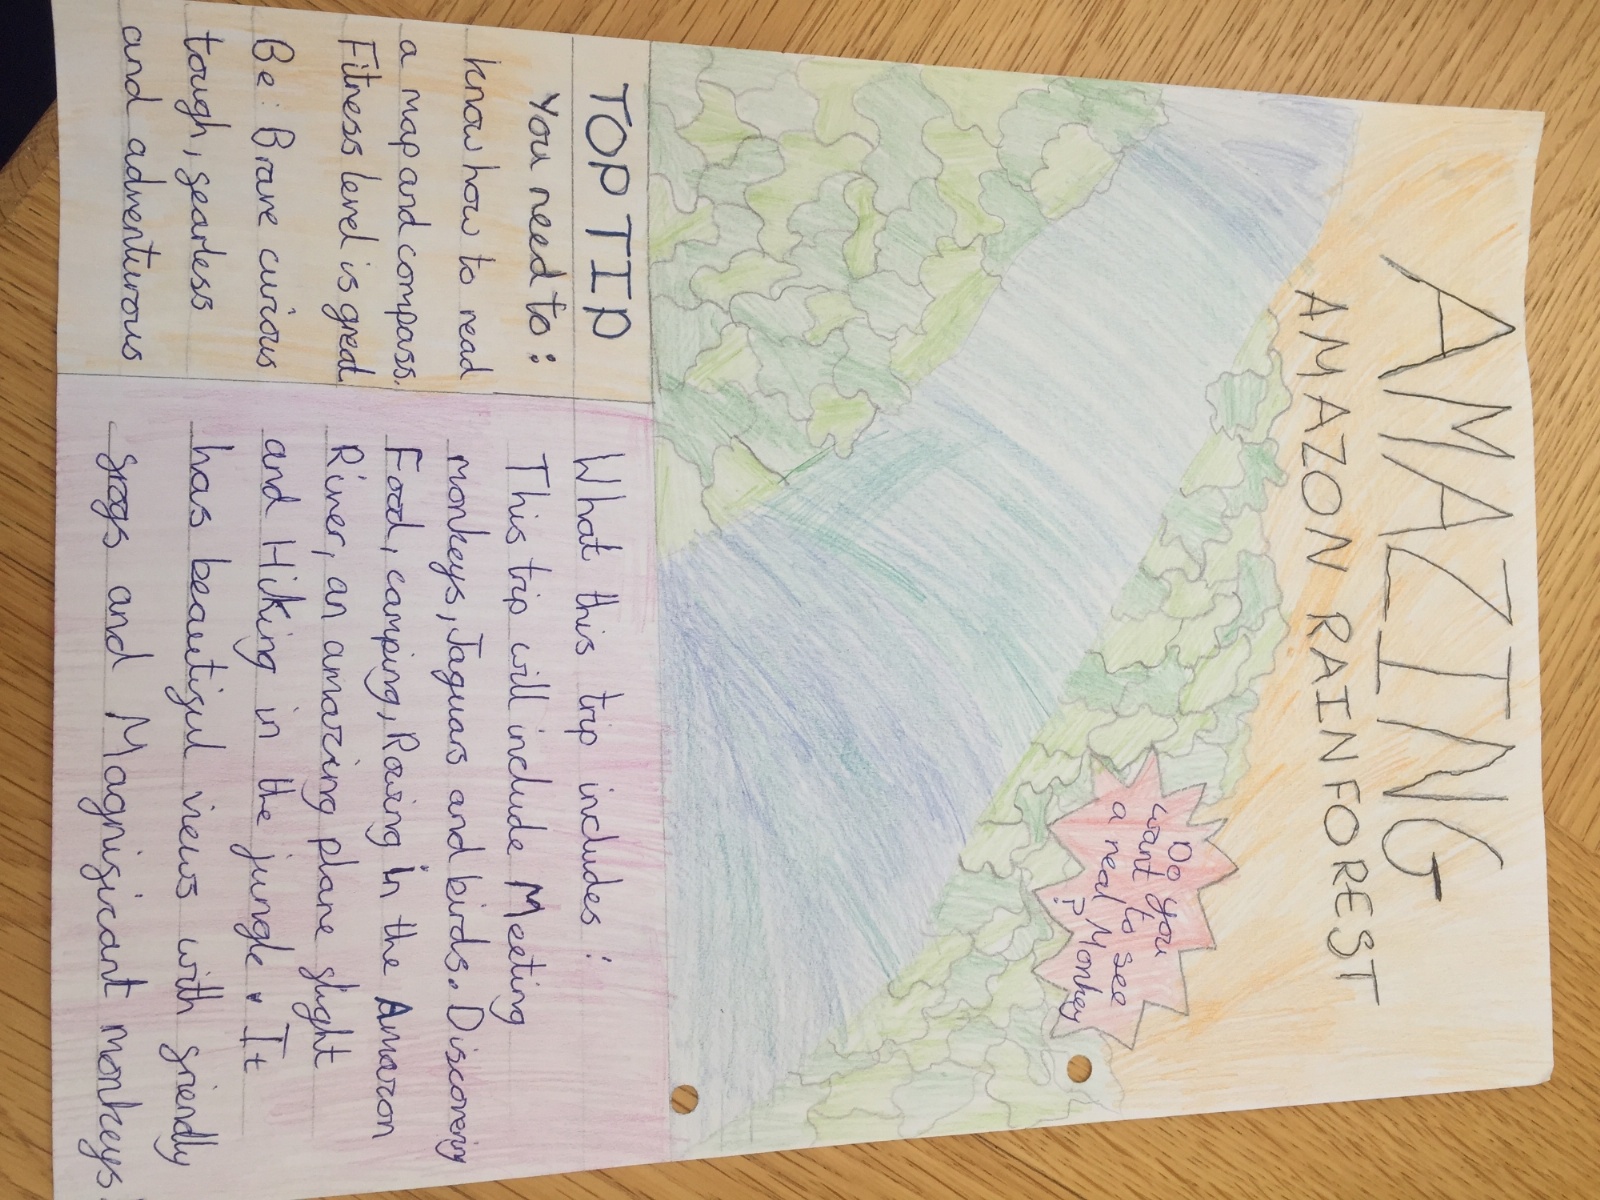 AMAZING
AMAZON RAINFOREST
Do you
want to see
a real Monkey
?
TOP TIP
You need to:
know how to read
a map and compass.
Fitness level is great
Be: Brave curious
tough, fearless
and adventurous
What this trip includes:
This trip will include Meeting
monkeys, Jaguars and birds. Discovering
Food, camping, Rowing in the Amazon
River, an amazing plane flight
and Hiking in the jungle. It
has beautiful views with friendly
frogs and Magnificant monkeys.